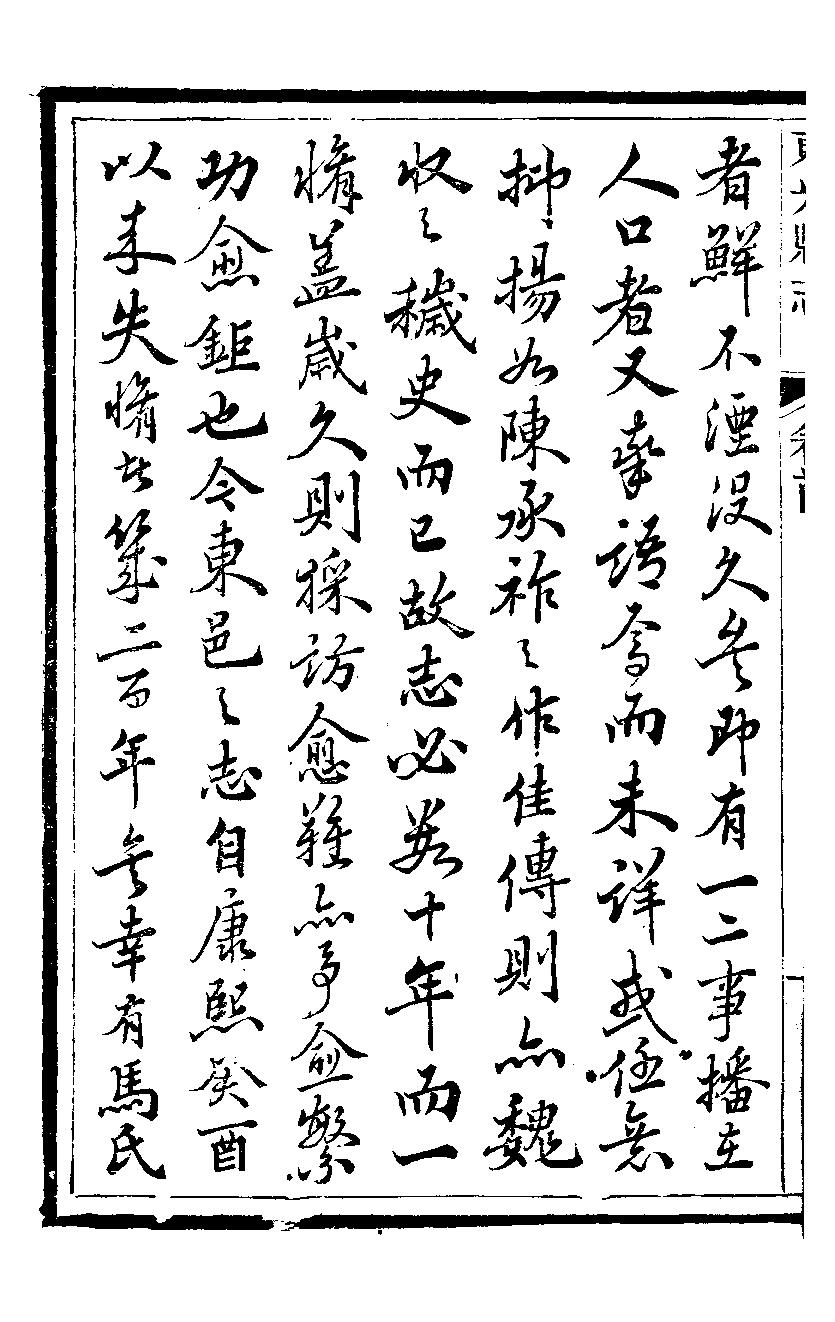 東光縣志 卷首
者鮮不湮沒久矣即有一二事播在
人口者又率語焉而未詳或任意
抑揚如陳承祚之作佳傳則亦魏
收之穢史而已故志必数十年而一
脩蓋歲久則採訪愈難亦事愈繁
功愈鉅也今東邑之志自康熙癸酉
以來失脩者幾二百年矣幸有馬氏